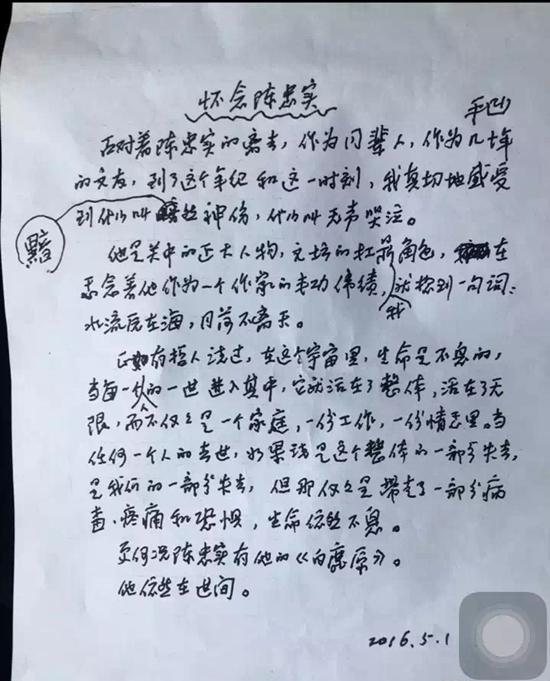 怀念陈忠实
平凹
面对着陈忠实的离去，作为同辈人，作为几十年
的文友，到了这个年纪和这一时刻，我真切地感受
到什么叫黯然神伤，什么叫无声哭泣。
他是关中的正大人物，文坛的扛鼎角色，在
思念着他作为一个作家的丰功伟绩，我想到一句词：
水流原在海，月落不离天。
正如有哲人说过，在这个宇宙里，生命是不息的，
当每一个人的一世进入其中，它就活在了整体，活在了无
限，而不仅仅是一个家庭，一份工作，一份情意里。当
任何一个人的去世，如果说是这个整体的一部分失去，
是我们的一部分失去，但那仅仅是带走了一部分病
毒、疼痛和恐惧，生命依然不息。
更何况陈忠实有他的《白鹿原》。
他依然在世间。
2016.5.1